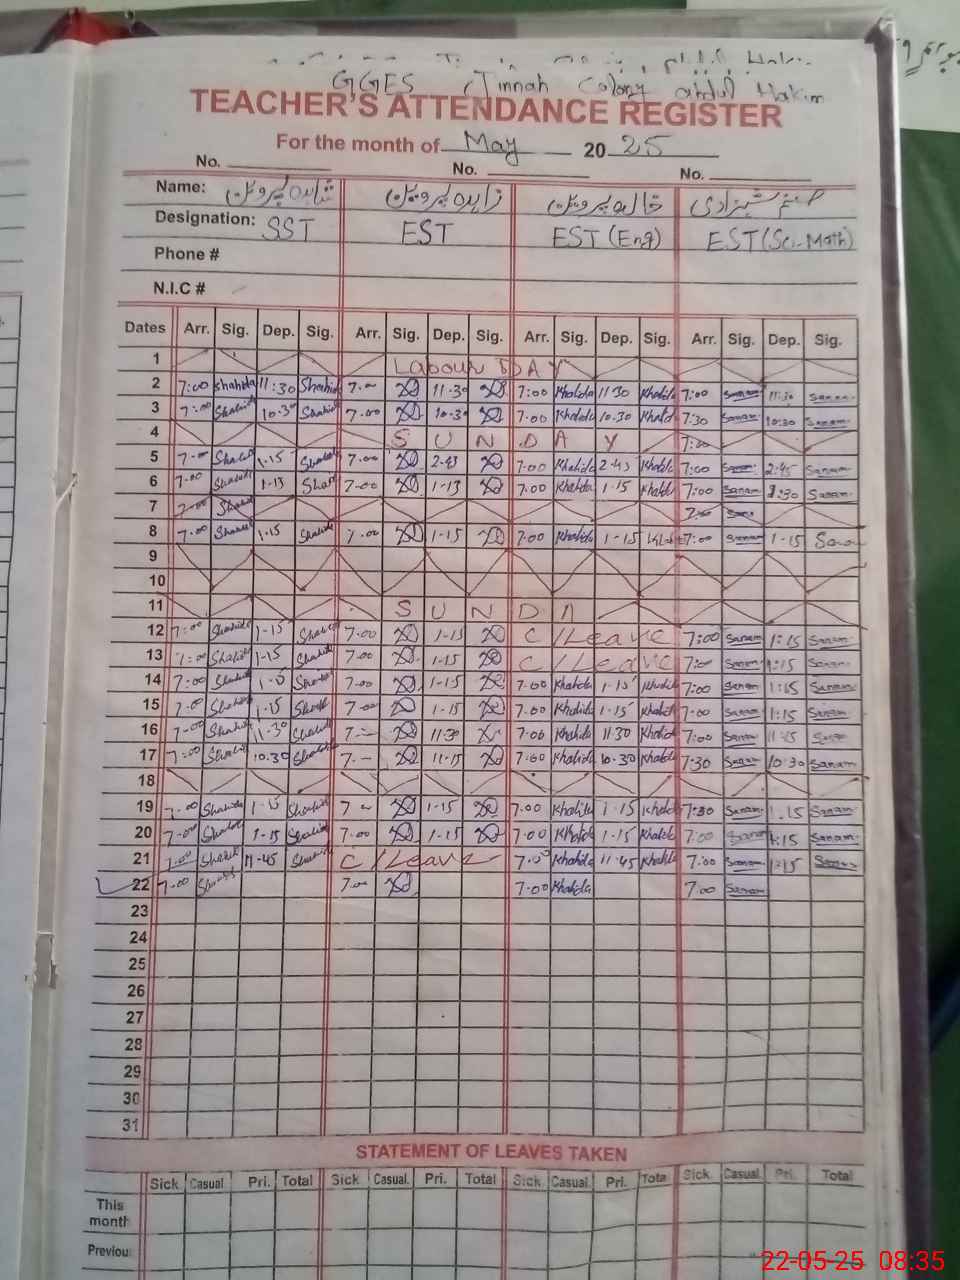 GGES Jinnah Colony abdul Hakim
TEACHER'S ATTENDANCE REGISTER
For the month of May 2025
No. No. No.
Name: شاہدہ پروین زاہدہ پروین خالدہ پروین صنم شہزادی
Designation: SST EST EST (Eng) EST (Sci-Math)
Phone #
N.I.C #
Dates Arr. Sig. Dep. Sig. Arr. Sig. Dep. Sig. Arr. Sig. Dep. Sig. Arr. Sig. Dep. Sig.
1 Labour DAY
2 7:00 Shahida 11:30 Shahida 7.00 11.30 7:00 Khalida 11.30 Khalida 7:00 Sanam 11:30 Sanam
3 7:00 Shahida 10.30 Shahida 7.00 10.30 7.00 Khalida 10.30 Khalida 7:30 Sanam 10:30 Sanam
4 SUNDAY 7:00
5 7.00 Shahida 1.15 Shahida 7.00 2.45 7.00 Khalida 2.45 Khalida 7:00 Sanam 2:45 Sanam
6 7.00 Shahida 1.15 7.00 1.15 7.00 Khalida 1.15 Khalida 7:00 Sanam Sanam
7 7.00
8 7.00 1.15 Shahida 7.00 1.15 7.00 Khalida 1.15 7:00 Sanam 1.15 Sanam
9
10
11 SUNDA
12 7:00 Shahida 1.15 7.00 1.15 C/Leave 7:00 Sanam 1:15 Sanam
13 7:00 Shahida 1.15 Shahida 7.00 1.15 C/Leave 7:00 Sanam 1:15 Sanam
14 7:00 Shahida 7.00 1.15 7.00 Khalida 1.15 Khalida 7:00 Sanam 1:15 Sanam
15 7.00 Shahida 1.15 7.00 1.15 7.00 Khalida 1.15 Khalida 7.00 Sanam 1:15 Sanam
16 7.00 Shahida 11.30 Shahida 11.30 7.00 Khalida 11.30 Khalida 7:00 Sanam Sanam
17 7:00 Shahida 10.30 Shahida 11.15 7.00 Khalida 10.30 Khalida 7:30 Sanam 10:30 Sanam
18
19 7.00 Shahida 1.15 Shahida 1.15 7.00 Khalida 1.15 Khalida 7:30 Sanam 1.15 Sanam
20 7.00 Shahida 1.15 Shahida 7.00 1.15 7.00 Khalida 1.15 Khalida 7:00 Sanam 1:15 Sanam
21 7.00 Shahida 11.45 C/Leave 7.00 Khalida 11.45 Khalida 7:00 Sanam 1:15 Sanam
22 7.00 7.00 7.00 Khalida 7:00 Sanam
23
24
25
26
27
28
29
30
31
STATEMENT OF LEAVES TAKEN
Sick Casual Pri. Total Sick Casual. Pri. Total Sick Casual. Pri. Total Sick Casual. Pri. Total
This
month
Previou
22-05-25 08:35